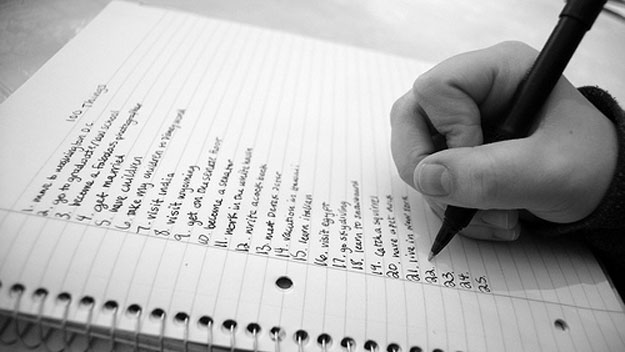 100 Things
2. move to washington D.C.
3. go to graduate/law school
4. become a fabulous photographer
5. get married
6. have children
7. take my children to Disney world
8. visit India
9. visit wyoming
10. get on the senate floor
11. become a senator
12. work in the white house
13. write a cook book
14. meet Derek Jeter
15. vacation in
16. learn Italian
17. visit egypt
18. go sky diving
19. learn to snowboard
20. catch a squirrel
21. have a pet
live in New York
22.
23.
24.
25.